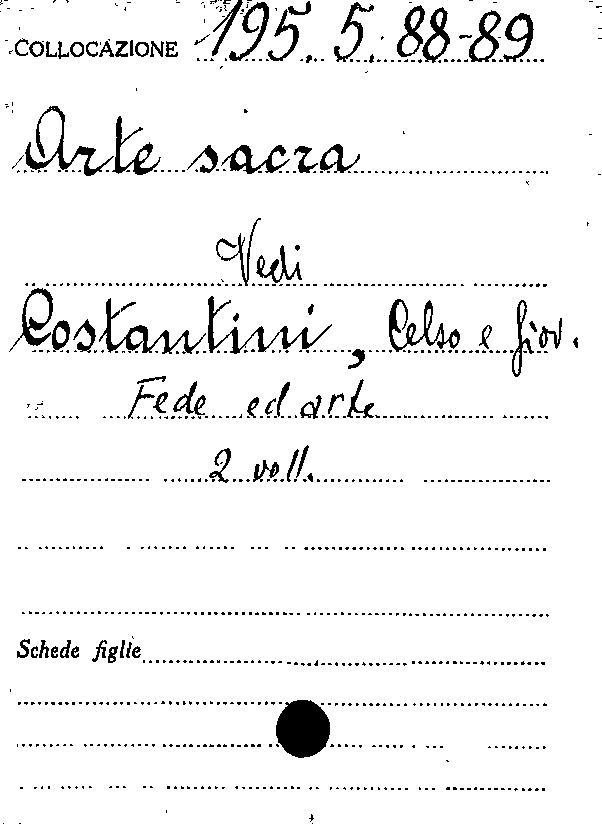 COLLOCAZIONE 195. 5. 88-89
Arte sacra
Vedi
Costantini, Celso e Giov.
Fede ed arte
2 voll.
Schede figlie